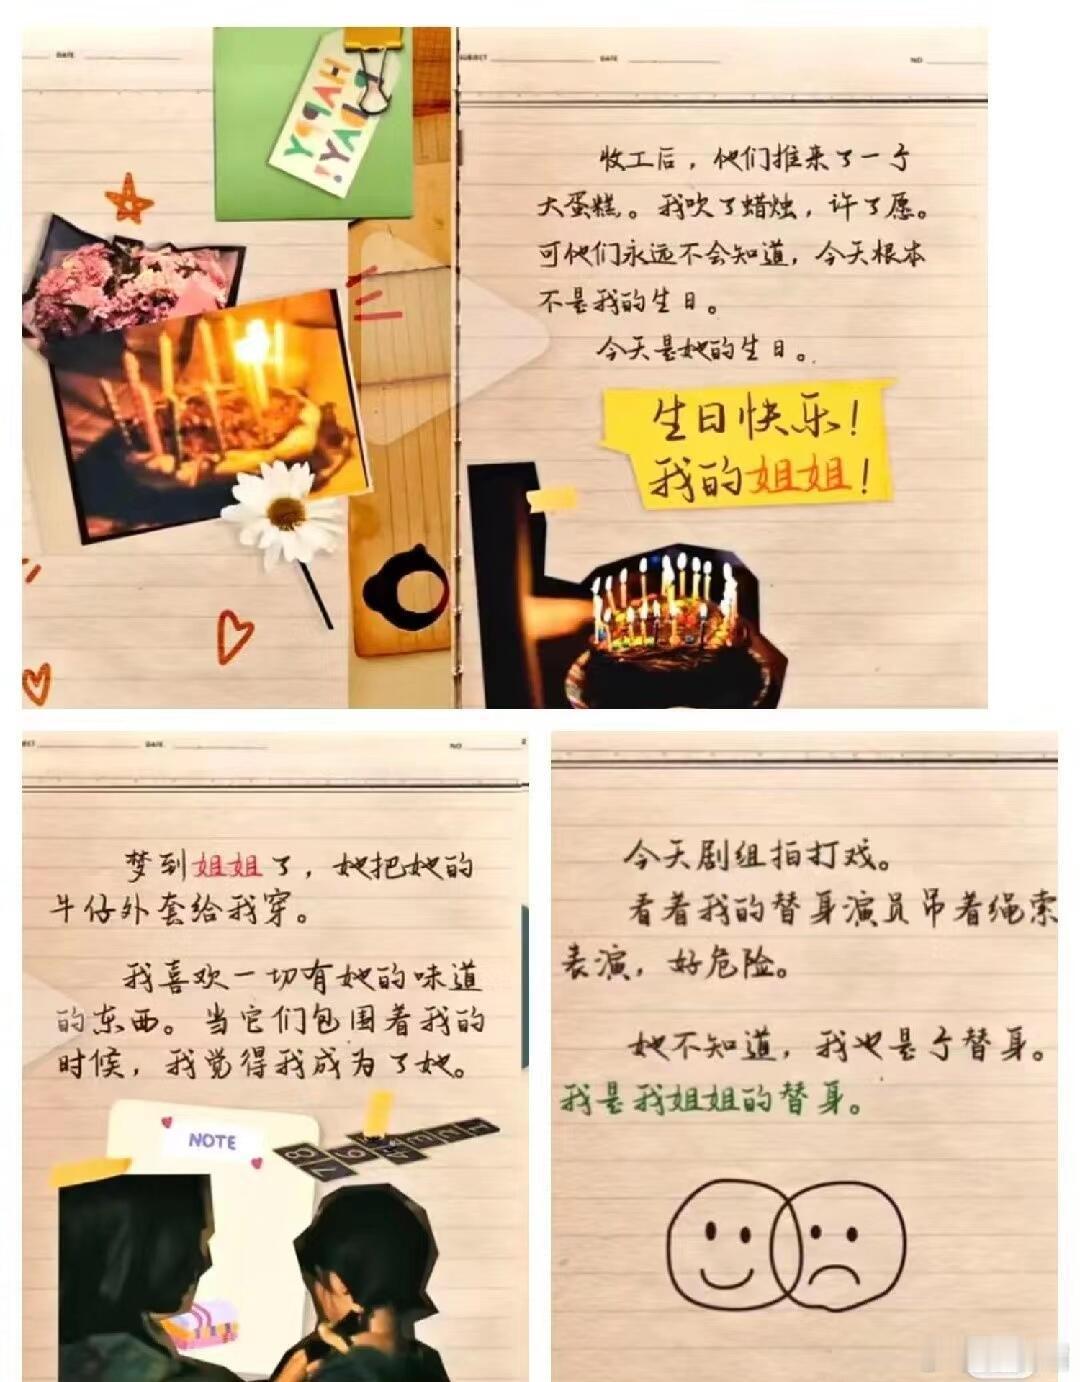 DATE
HAPPY
BDAY!
SUBJECT
DATE
NO
收工后，他们推来了一个
大蛋糕。我吹了蜡烛，许了愿。
可他们永远不会知道，今天根本
不是我的生日。
今天是她的生日。
生日快乐！
我的姐姐！
DATE
NO
2
梦到姐姐了，她把她的
牛仔外套给我穿。
我喜欢一切有她的味道
的东西。当它们包围着我的
时候，我觉得我成为了她。
NOTE
今天剧组拍打戏。
看着我的替身演员吊着绳索
表演，好危险。
她不知道，我也是个替身。
我是我姐姐的替身。